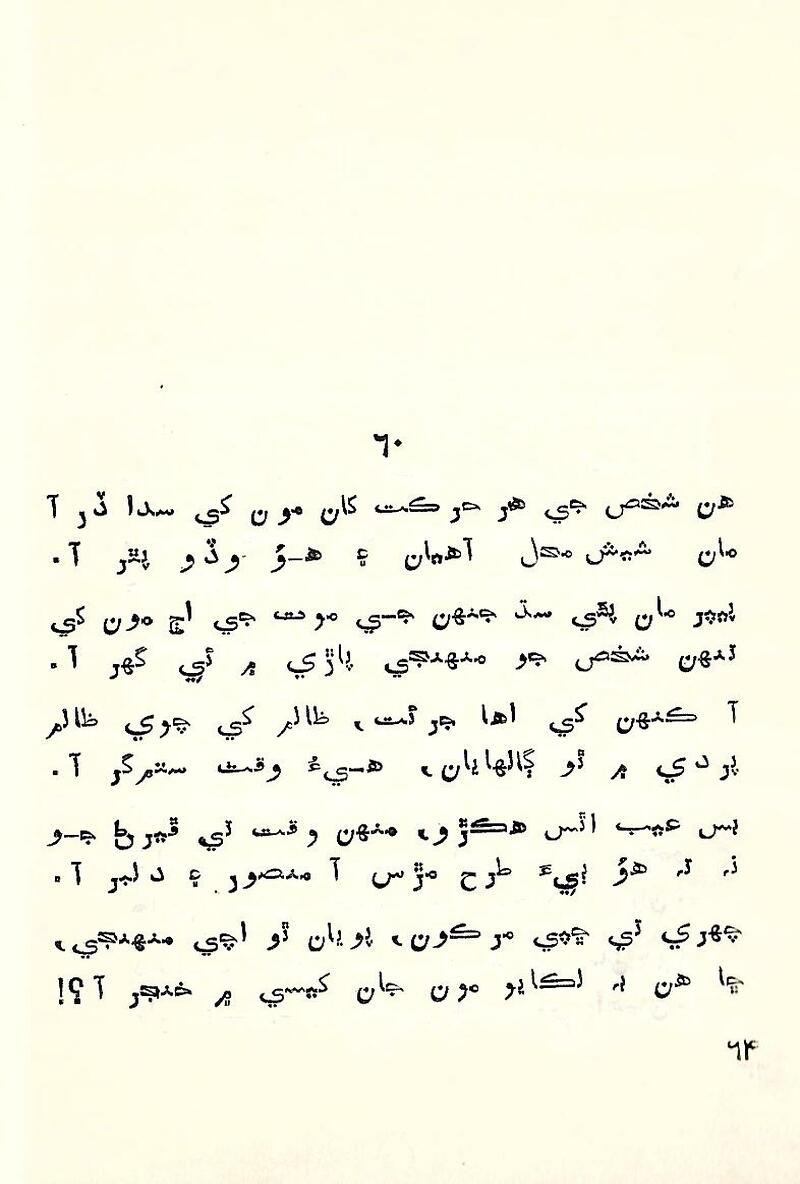 ۶۰
هن شخص جي هر حرڪت کان مون کي سدا ڏر آ
مان شيش محل آهيان ۽ هـوُ وڏو پٿر آ.
پيپر مان پٽي سڌ جنهن جـي موت جي اڄ مون کي
تنهن شخص جو منهنجي پاڙي ۾ ئي گهر آ.
آ ڪنهن کي اها جرئت، ظالم کي چوي ظالم
پردي ۾ ٿو ڳالهايان، هـيءُ وقت ستمگر آ.
بس عيب اٿس هڪڙو، منهن وقت تي ڦيرڻ جـو
نہ تہ هوُ ٻيءَ طرح مڙس آ منصور ۽ دلبر آ.
چهري تي ڇپي مرڪون، پويان ٿو اچي منهنجي،
ڇا هن بہ لڪايو مون جان کيسي ۾ خنجر آ؟!
۶۴